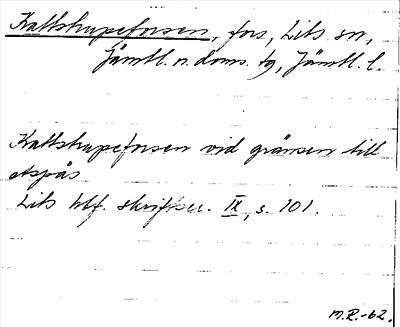 Kallstrupeforsen, fors, Lits sn,
Jämtl. n. doms. tg, Jämtl. l.
Kallstrupeforsen vid gränsen till
Aspås
Lits hbf. skriftser. IX, s. 101.
M.R.-62.